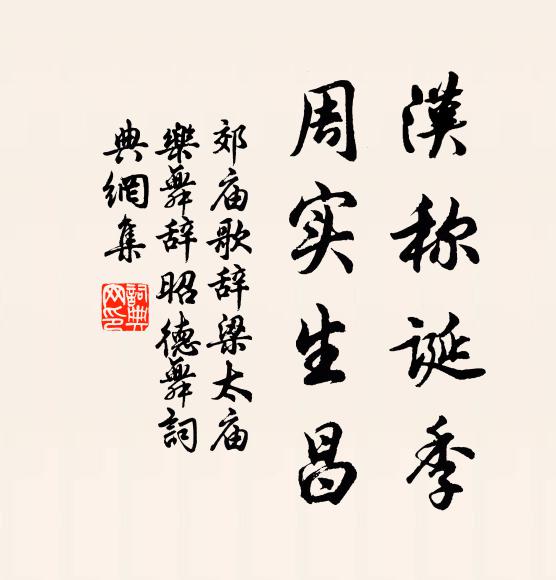 漢称誕季
周实生昌
郊庙歌辞梁太庙
樂舞辞昭德舞詞
典網集
詞典网印